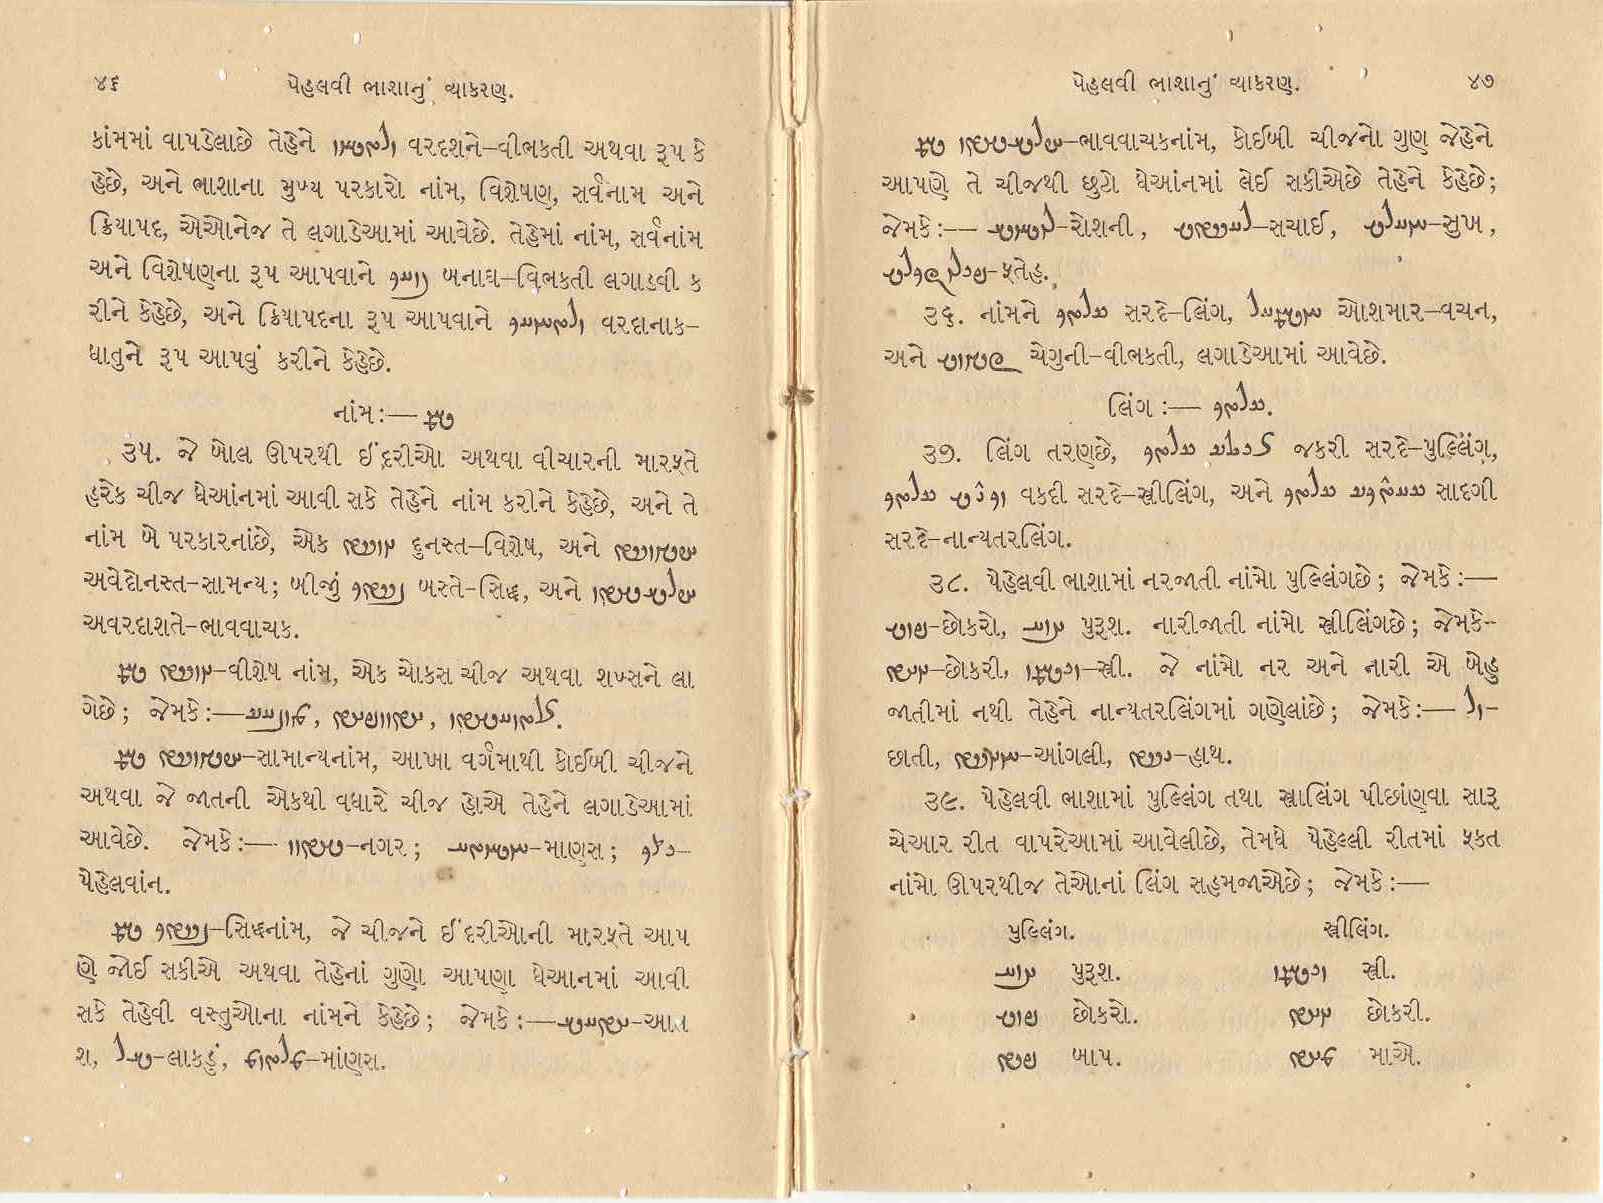 ૪૬ પેહલવી ભાશાનું વ્યાકરણ.
કાંમમાં વાપડેલાછે તેહેને વરદશને-વીભકતી અથવા રૂપ કે
હેછે, અને ભાશાના મુખ્ય પરકારો નાંમ, વિશેષણ, સર્વનામ અને
ક્રિયાપદ, એઓનેજ તે લગાડેઆમાં આવેછે. તેહેમાં નાંમ, સર્વનાંમ
અને વિશેષણના રૂપ આપવાને બનાઘ-વિભકતી લગાડવી ક
રીને કેહેછે, અને ક્રિયાપદના રૂપ આપવાને વરદાનાક-
ધાતુને રૂપ આપવું કરીને કેહેછે.
નાંમ:—
૩૫. જે બોલ ઊપરથી ઈંદરીઓ અથવા વીચારની મારફતે
હરેક ચીજ ધેઆંનમાં આવી સકે તેહેને નાંમ કરીને કેહેછે, અને તે
નાંમ બે પરકારનાંછે, એક દુનસ્ત-વિશેષ, અને
અવેદોનસ્ત-સામન્ય; બીજું બસ્તે-સિદ્ધ, અને
અવરદાશતે-ભાવવાચક.
-વીશેષ નાંમ, એક ચોકસ ચીજ અથવા શખ્સને લા
ગેછે; જેમકે:—
-સામાન્યનાંમ, આખા વર્ગમાથી કોઈબી ચીજને
અથવા જે જાતની એકથી વધારે ચીજ હોએ તેહેને લગાડેઆમાં
આવેછે. જેમકે:— -નગર; -માણસ; -
પેહેલવાંન.
-સિદ્ધનાંમ, જે ચીજને ઈંદરીઓની મારફતે આપ
ણે જોઈ સકીએ અથવા તેહેનાં ગુણો આપણા ધેઆનમાં આવી
સકે તેહેવી વસ્તુઓના નાંમને કેહેછે; જેમકે:— -આત
શ, -લાકડું, -માંણસ.
પેહલવી ભાશાનું વ્યાકરણ. ૪૭
-ભાવવાચકનાંમ, કોઈબી ચીજનો ગુણ જેહેને
આપણે તે ચીજથી છુટો ધેઆંનમાં લેઈ સકીએછે તેહેને કેહેછે;
જેમકે:— -રોશની, -સચાઈ, -સુખ,
-ફતેહ.
૩૬. નાંમને સરદે-લિંગ, ઓશમાર-વચન,
અને ચેગુની-વીભકતી, લગાડેઆમાં આવેછે.
લિંગ:—
૩૭. લિંગ તરણછે, જકરી સરદે-પુલ્લિંગ,
વકદી સરદે-સ્ત્રીલિંગ, અને સાદગી
સરદે-નાન્યતરલિંગ.
૩૮. પેહેલવી ભાશામાં નરજાતી નાંમો પુલ્લિંગછે; જેમકે:—
-છોકરો, પુરૂશ. નારીજાતી નાંમો સ્ત્રીલિંગછે; જેમકે-
-છોકરી, -સ્ત્રી. જે નાંમો નર અને નારી એ બેહુ
જાતીમાં નથી તેહેને નાન્યતરલિંગમાં ગણેલાંછે; જેમકે:— -
છાતી, -આંગલી, -હાથ.
૩૯. પેહેલવી ભાશામાં પુલ્લિંગ તથા સ્ત્રાલિંગ પીછાંણવા સારૂ
ચેઆર રીત વાપરેઆમાં આવેલીછે, તેમધે પેહેલ્લી રીતમાં ફકત
નાંમો ઊપરથીજ તેઓનાં લિંગ સહમજાએછે; જેમકે:—
પુલ્લિંગ. સ્ત્રીલિંગ.
પુરૂશ. સ્ત્રી.
છોકરો. છોકરી.
બાપ. માએ.